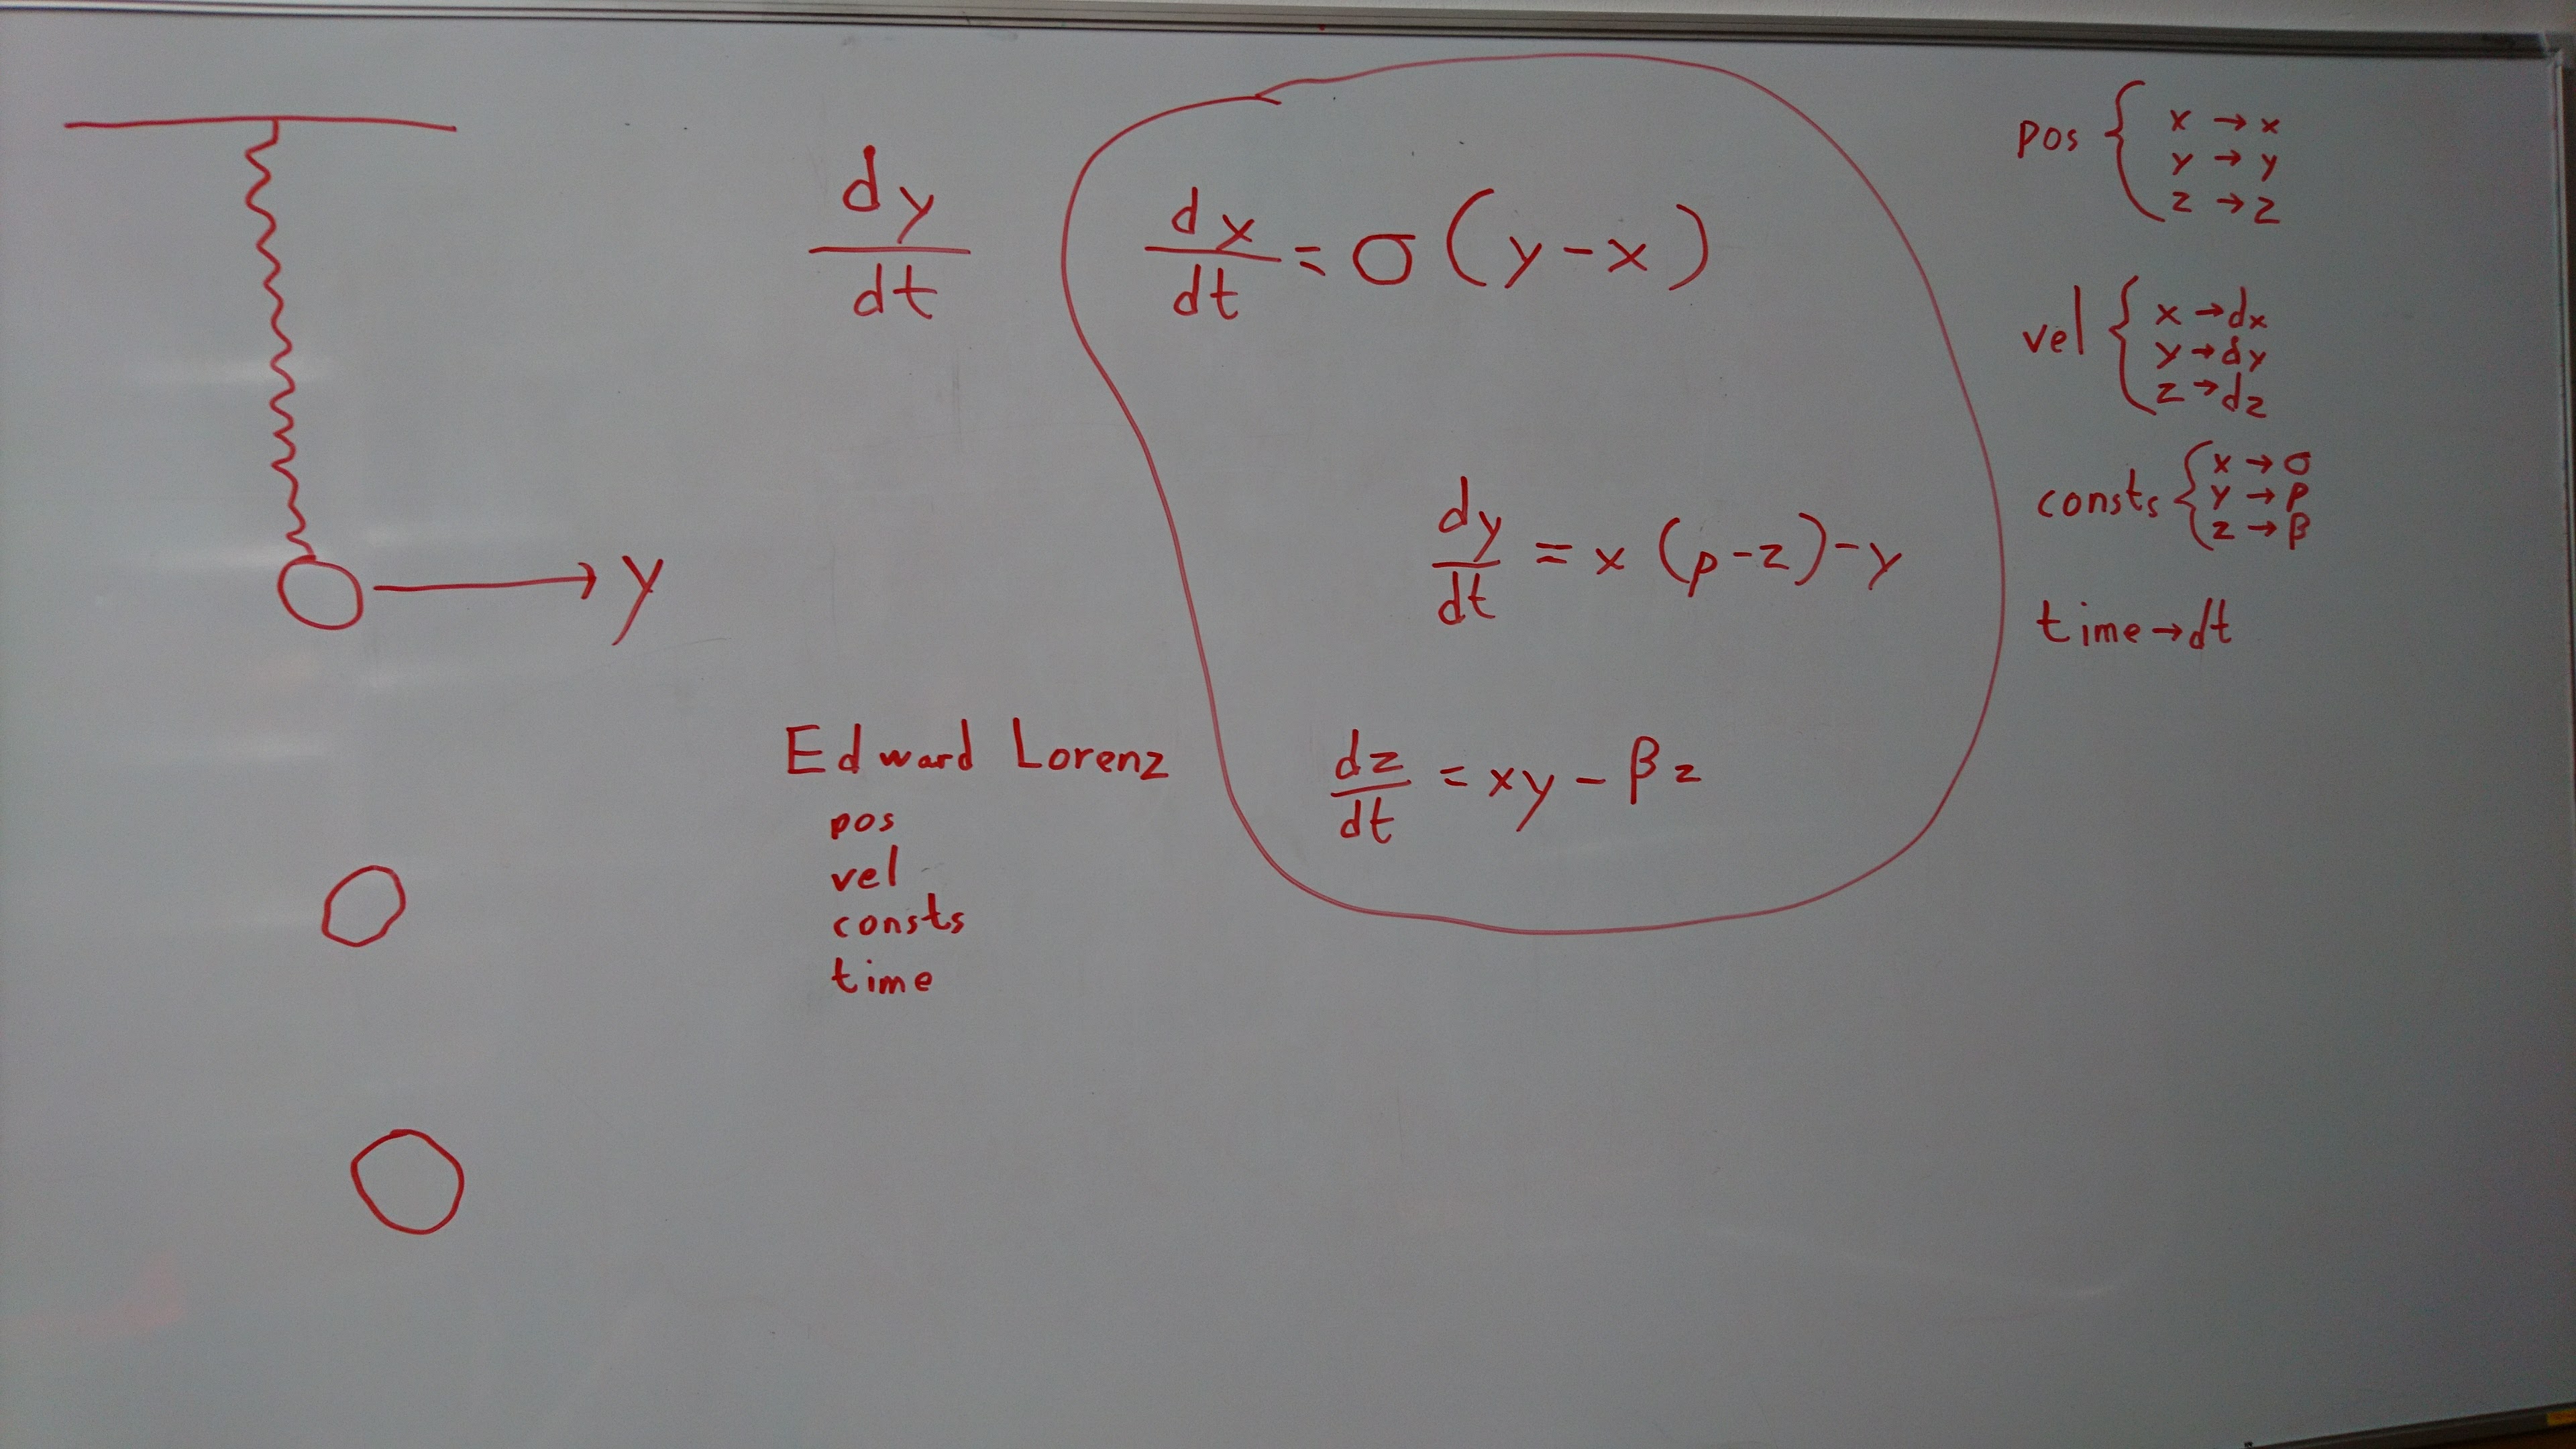 y
dy
dt
dx/dt = σ (y - x)
dy/dt = x (ρ - z) - y
dz/dt = xy - βz
Edward Lorenz
pos
vel
consts
time
pos { x → x
y → y
z → z
vel { x → dx
y → dy
z → dz
consts { x → σ
y → ρ
z → β
time → dt